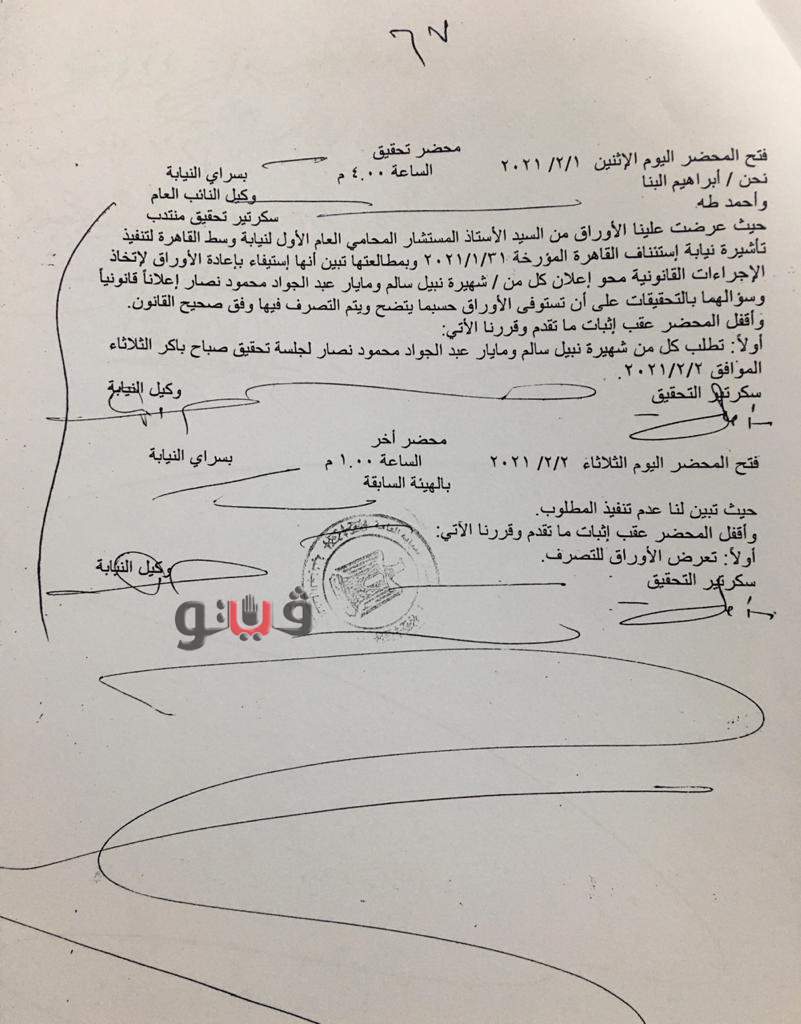 ٦٧
محضر تحقيق
فتح المحضر اليوم الإثنين ٢٠٢١/٢/١ الساعة ٤.٠٠ م بسراي النيابة
نحن / أبراهيم البنا وكيل النائب العام
وأحمد طه سكرتير تحقيق منتدب
حيث عرضت علينا الأوراق من السيد الأستاذ المستشار المحامي العام الأول لنيابة وسط القاهرة لتنفيذ
تأشيرة نيابة إستئناف القاهرة المؤرخة ٢٠٢١/١/٣١ وبمطالعتها تبين أنها إستيفاء بإعادة الأوراق لإتخاذ
الإجراءات القانونية محو إعلان كل من / شهيرة نبيل سالم ومايار عبد الجواد محمود نصار إعلاناً قانونياً
وسؤالهما بالتحقيقات على أن تستوفى الأوراق حسبما يتضح ويتم التصرف فيها وفق صحيح القانون.
وأقفل المحضر عقب إثبات ما تقدم وقررنا الأتي:
أولاً: تطلب كل من شهيرة نبيل سالم ومايار عبد الجواد محمود نصار لجلسة تحقيق صباح باكر الثلاثاء
الموافق ٢٠٢١/٢/٢.
سكرتير التحقيق وكيل النيابة
محضر أخر
فتح المحضر اليوم الثلاثاء ٢٠٢١/٢/٢ الساعة ١.٠٠ م بسراي النيابة
بالهيئة السابقة
حيث تبين لنا عدم تنفيذ المطلوب.
وأقفل المحضر عقب إثبات ما تقدم وقررنا الآتي:
أولاً: تعرض الأوراق للتصرف.
سكرتير التحقيق وكيل النيابة
ڤيتو